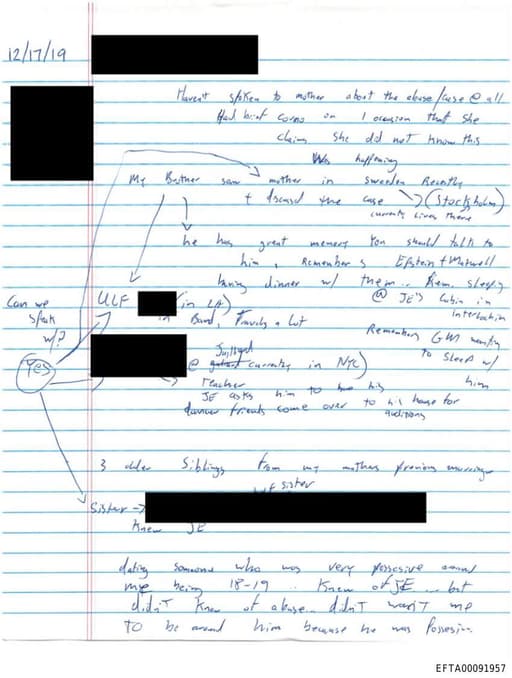 12/17/19
Haven't spoken to mother about the abuse/case @ all
Had brief convo on 1 occasion that she
claims she did not know this
was happening
My Brother saw mother in Sweden Recently
+ discussed the case (Stockholm)
currently lives there
he has great memory You should talk to
him, Remembers Epstein + Maxwell
having dinner w/ them.. Rem. sleeping
@ JE's Cabin in
Interlochen
Can we
speak
w/?
Yes
ULF (in LA)
in Band, Travels a Lot
Remembers GM wanting
to sleep w/
him
@ currently in NYC)
Teacher
JE asks him to his
dancer friends come over to his house for
auditions
3 older Siblings from my mothers previous marriage
sister
Sister →
Knew JE
dating someone who was very possesive around
me being 18-19 .. Knew of JE .. but
didn't know of abuse.. didn't want me
to be around him because he was
EFTA00091957